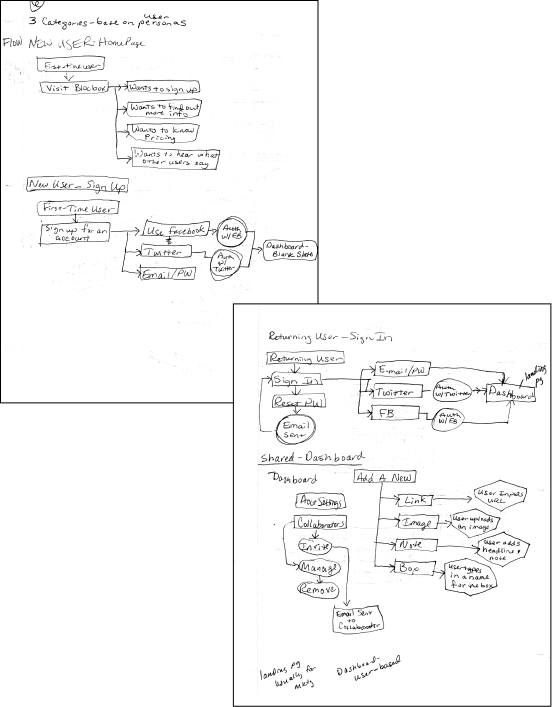 6
user
3 Categories-base on personas
Flow NEW USER: HomePage
First-time user
Visit Blocbox
Wants to sign up
Wants to find out
more info
Wants to know
Pricing
Wants to hear what
other users say
New User - Sign Up
First-Time User
Sign up for an
account
Use Facebook
Auth
w/FB
Twitter
Auth
w/
Twitter
Email/PW
Dashboard-
Blank State
Returning User - Sign In
Returning User
Sign In
Reset PW
Email
Sent
E-mail/PW
Twitter
Auth
w/Twitter
FB
Auth
w/FB
Dashboard
landing
pg
Shared-Dashboard
Dashboard
Acct Settings
Collaborators
Invite
Manage
Remove
Email Sent
to
Collaborator
Add A New
Link
User Inputs
URL
Image
User uploads
an image
Note
User adds
headline &
note
Box
User types
in a name
for the box
landing pg
usually for
mktg
Dashboard-
user-based